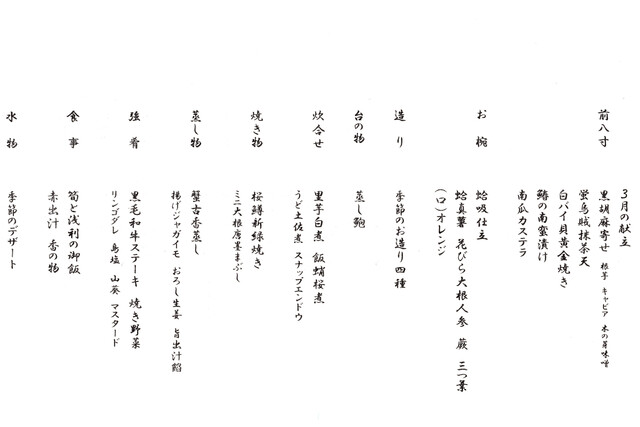 3月の献立
前八寸
黒胡麻寄せ 根芋 キャビア 木の芽味噌
蛍烏賊抹茶天
白バイ貝黄金焼き
鰆の南蛮漬け
南瓜カステラ
お椀
蛤吸仕立
蛤真薯 花びら大根人参 蕨 三つ葉
(口)オレンジ
造り
季節のお造り四種
台の物
蒸し鮑
炊合せ
里芋白煮 飯蛸桜煮
うど土佐煮 スナップエンドウ
焼き物
桜鱒新緑焼き
ミニ大根唐墨まぶし
蒸し物
蟹古香蒸し
揚げジャガイモ おろし生姜 旨出汁餡
強肴
黒毛和牛ステーキ 焼き野菜
リンゴダレ 島塩 山葵 マスタード
食事
筍と浅利の御飯
赤出汁 香の物
水物
季節のデザート